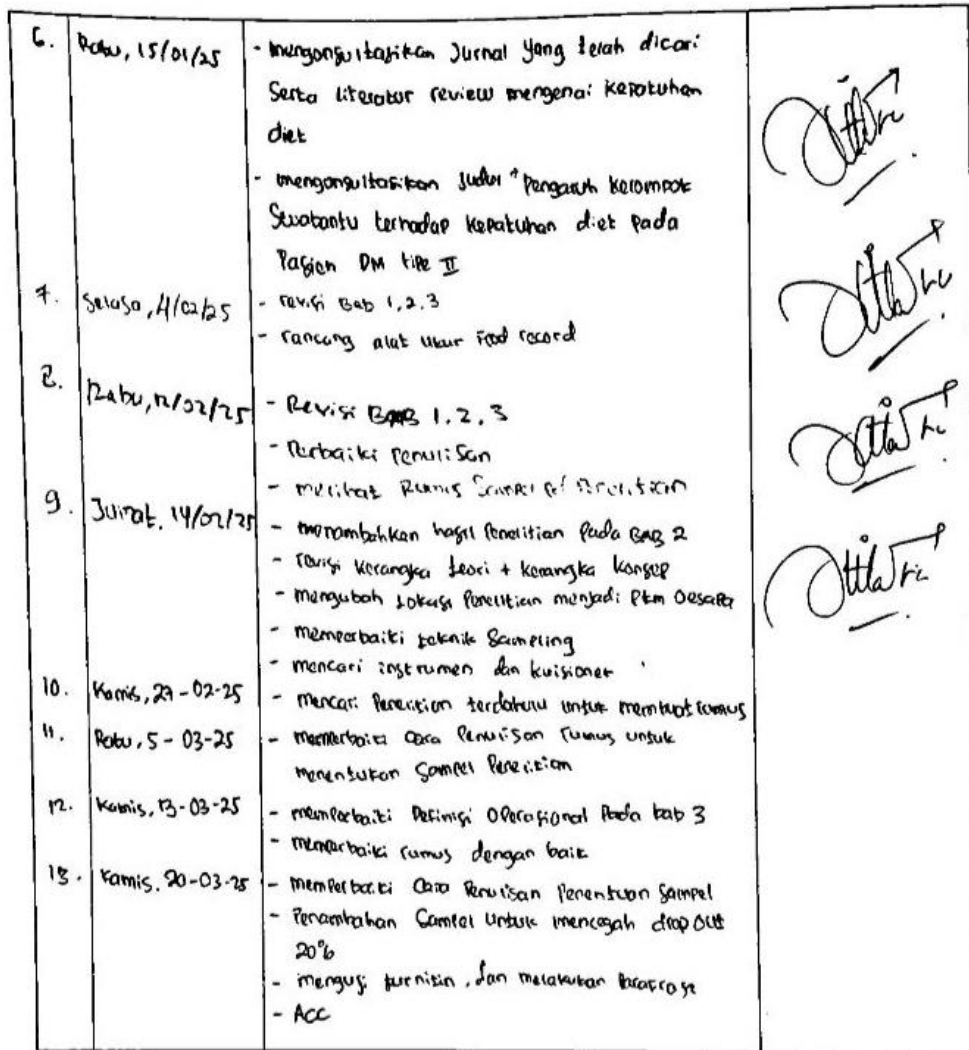 6. Rabu, 15/01/25 - mengonsultasikan Jurnal yang telah dicari
Serta literatur review mengenai kepatuhan
diet
- mengonsultasikan Judul "Pengaruh kelompok
Swabantu terhadap kepatuhan diet pada
Pasien DM tipe II
7. Selasa, 4/02/25 - revisi Bab 1,2,3
- rancang alat ukur food record
8. Rabu, 12/02/25 - Revisi BAB 1,2,3
- Perbaiki penulisan
- melihat Rumus Sampel
9. Jumat, 14/02/25 - menambahkan hasil Penelitian pada BAB 2
- revisi kerangka teori + kerangka konsep
- mengubah lokasi Penelitian menjadi Pkm Oesapa
- memperbaiki teknik Sampling
- mencari instrumen dan kuisioner
10. Kamis, 27-02-25 - mencari Penelitian terdahulu untuk membuat rumus
11. Rabu, 5-03-25 - memperbaiki Cara Penulisan rumus untuk
menentukan Sampel Penelitian
12. Kamis, 13-03-25 - memperbaiki Definisi Operasional Pada bab 3
- memperbaiki rumus dengan baik
13. Kamis, 20-03-25 - memperbaiki Cara Penulisan Penentuan Sampel
- Penambahan Sampel untuk mencegah drop out
20%
- menguji turnitin, dan melakukan Parafrase
- ACC